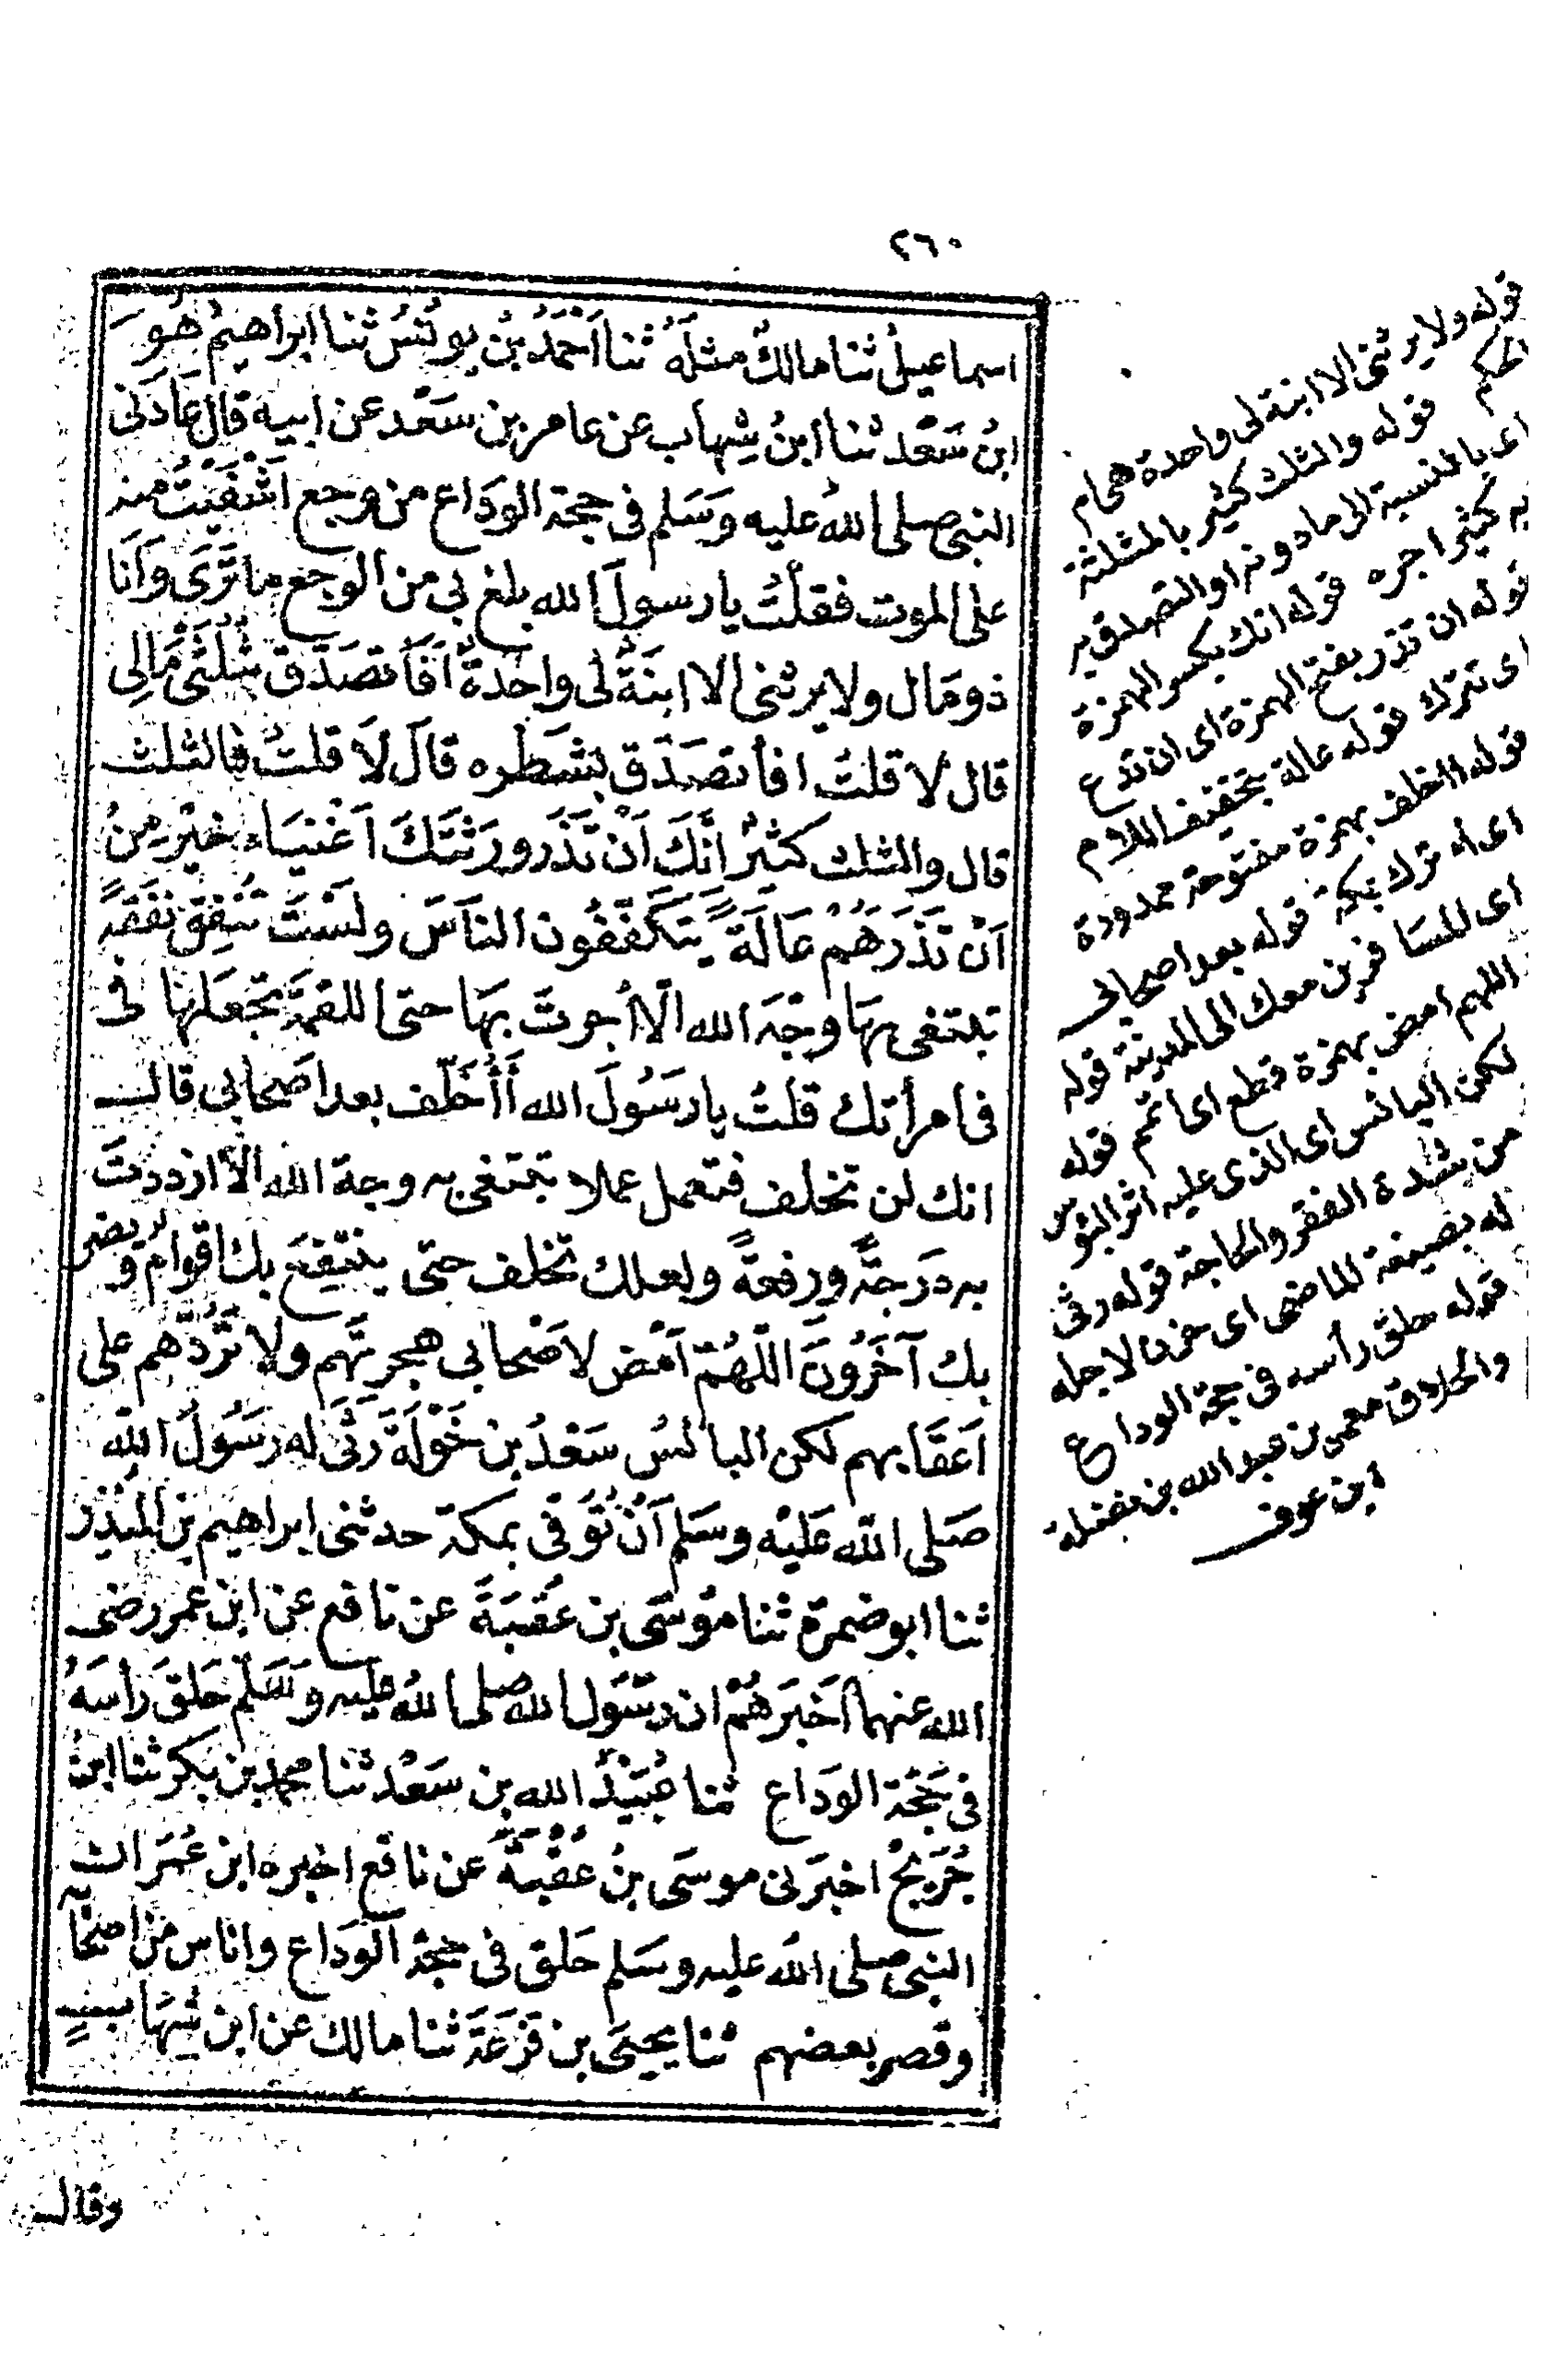 ٢٦٠
اسماعيلُ ثنا مالكٌ مثلَهُ ثنا اَحْمَدُ بْنُ يُونُسَ ثنا ابراهيمُ هُوَ
ابنُ سَعْد ثنا ابنُ شِهاب عن عامر بن سَعْد عن ابيه قال عَادَنى
النبى صلى اللهُ عليه وَسَلم فى حجة الوَدَاع من وجع اَشْفَيْتُ منه
على الموت فقلتُ يا رسولَ الله بلغ بى من الوجع ما تَرَى وَاَنَا
ذو مَال ولا يرثنى الا ابنَةٌ لى واحدةٌ اَفَاَتصَدَّق بثُلُثَىْ مَالِى
قال لا قلتُ افأتصَدَّق بشَطْره قالَ لاَ قلتُ فالثلث
قال والثلث كثيرٌ اِنَّكَ اَنْ تَذَرَ وَرَثَتَكَ اَغْنيَاء خيْرٌ مِنْ
اَنْ تَذَرَهُمْ عَالَةً يَتَكَفَّفُون النَاسَ ولَسْتَ تُنْفِقُ نَفَقَةً
تبتغى بهَا وجْهَ الله الّا اُجرتَ بهَا حتى اللقمَةَ تجْعَلهَا فى
فى امرأتك قلتُ يا رَسُولَ الله أَأُخَلَّف بعد اصَحابى قال
انك لن تخلف فتعمل عملا تبتغى به وجه الله الّا ازددتَ
به دَرَجةً ورفعةً ولعلك تخلف حتى ينتفِعَ بك اقوام و يضر
بك آخَرُونَ اللّهُمّ اَمْض لاَصْحابى هجرتَهم ولا تَرُدَّهم على
اَعقَابهم لكن البائسُ سَعْدُ بن خَوْلَةَ رَثَى له رَسُولُ الله
صَلى الله عَليْه وسَلم اَنْ تُوُفى بمكة حدثنى ابراهيم بن المنذر
ثنا ابو ضمرة ثنا مُوسَى بن عُقْبَةَ عن نافع عن ابن عمر رضى
الله عنهما اَخْبَرَهُمْ ان رسُول الله صلى اللهُ عليه وَسَلّم حَلقَ رَأسَهُ
فى حَجَّة الوَدَاع ثنا عُبَيْدُ الله بن سَعْد ثنا محمد بن بَكر ثنا ابنُ
جُرَيْجٌ اخبرَنى موسَى بنُ عُقْبَةَ عن نافع اخبره ابن عُمَر ان
النبى صلى الله عليه وسَلم حَلق فى حجة الوَدَاع واناس من اصحَابه
وقصر بعضهم ثنا يحيَى بن قزعَةَ ثنا مالك عن ابن شِهَاب
وقال
قوله ولا يرثنى الا ابنة لى واحدة هى ام
الحكم قوله والثلث كثير بالمثلثة
اى بالنسبة الى ما دونه او التصدق به
كثير اجره قوله انك بكسر الهمزة
قوله ان تذر بفتح الهمزة اى ان تدع
اى تترك قوله عالة بتخفيف اللام
قوله أاخلف بهمزة مفتوحة ممدودة
اى أاترك بمكة قوله بعد اصحابى
اى المسافرين معك الى المدينة قوله
اللهم امض بهمزة قطع اى اتمم قوله
لكن البائس اى الذى عليه اثر البؤس
من شدة الفقر والحاجة قوله رثى
له بصيغة الماضى اى حزن لاجله
قوله حلق رأسه فى حجة الوداع
والحلاق معمر بن عبد الله بن نضلة
ابن عوف